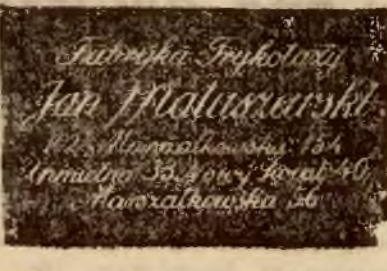 Fabryka Trykotaży
Jan Matuszewski
Marszałkowska 154
Chmielna 33, Nowy Świat 40,
Marszałkowska 56